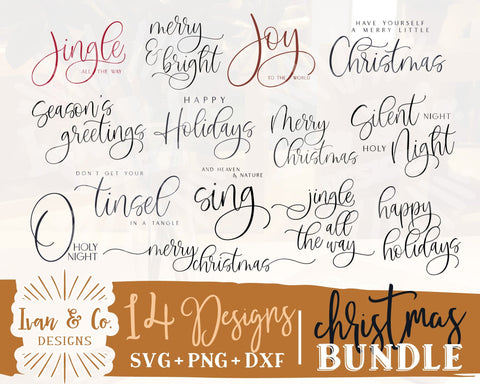 Jingle
ALL THE WAY
merry
& bright
Joy
TO THE WORLD
HAVE YOURSELF
A MERRY LITTLE
Christmas
Season's
greetings
HAPPY
Holidays
Merry
Christmas
Silent NIGHT
HOLY Night
DON'T GET YOUR
tinsel
IN A TANGLE
AND HEAVEN
& NATURE
sing
jingle
all
the way
happy
holidays
O HOLY
NIGHT
merry
christmas
Ivan & Co.
DESIGNS
14 Designs
SVG + PNG + DXF
christmas
BUNDLE